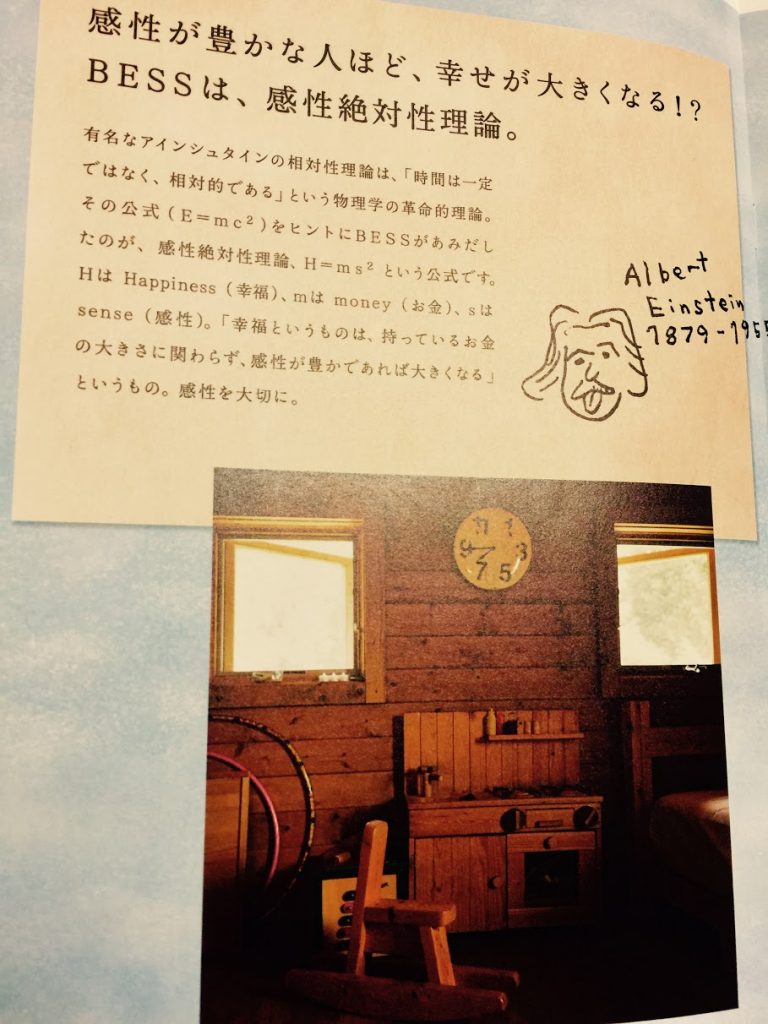 感性が豊かな人ほど、幸せが大きくなる!?
BESSは、感性絶対性理論。
有名なアインシュタインの相対性理論は、「時間は一定
ではなく、相対的である」という物理学の革命的理論。
その公式(E=mc²)をヒントにBESSがあみだし
たのが、感性絶対性理論、H=ms²という公式です。
Hは Happiness(幸福)、mは money(お金)、sは
sense(感性)。「幸福というものは、持っているお金
の大きさに関わらず、感性が豊かであれば大きくなる」
というもの。感性を大切に。
Albert
Einstein
1879-1955
9 3
7 5